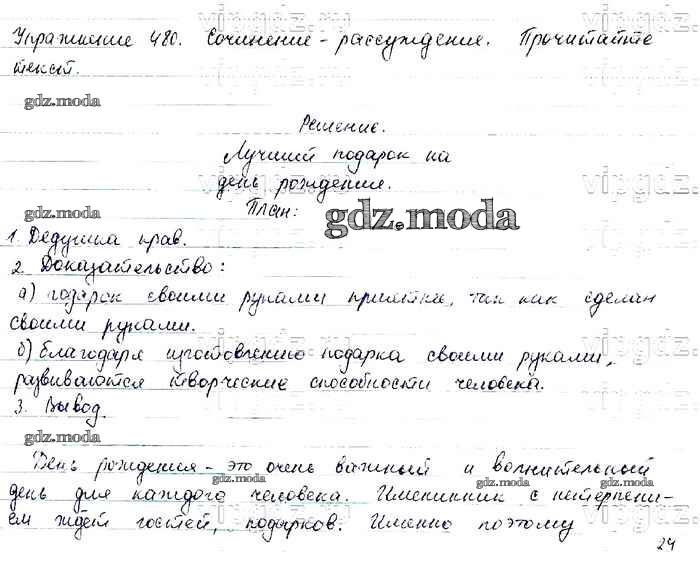 Упражнение 480. Сочинение-рассуждение. Прочитайте
текст.
gdz.moda
Решение.
Лучший подарок на
день рождения.
gdz.moda
План:
gdz.moda
1. Дедушка прав.
2. Доказательство:
а) подарок своими руками приятнее, так как сделан
своими руками.
б) благодаря изготовлению подарка своими руками,
развиваются творческие способности человека.
3. Вывод.
gdz.moda
День рождения - это очень важный и волнительный
день для каждого человека. Именинник с нетерпени-
ем ждёт гостей, подарков. Именно поэтому
24
vipgdz.ru